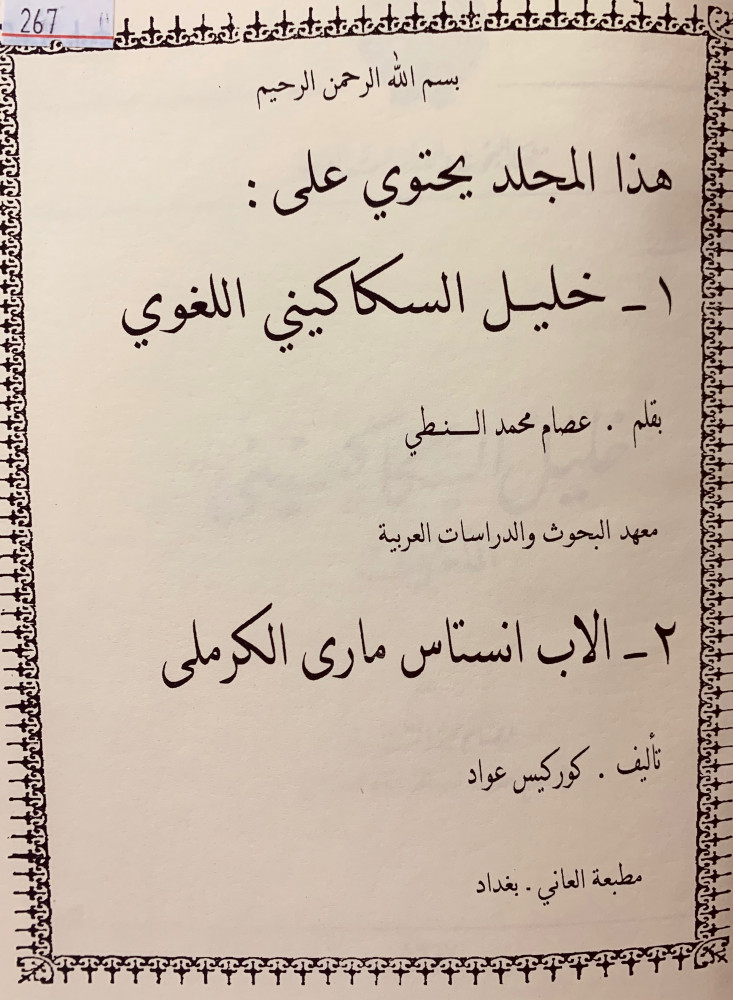 267
بسم الله الرحمن الرحيم
هذا المجلد يحتوي على :
١ ـ خليـل السكاكيني اللغوي
بقلم . عصام محمد الـــنـطي
معهد البحوث والدراسات العربية
٢ ـ الاب انستاس مارى الكرملى
تأليف . كوركيس عواد
مطبعة العاني . بغداد